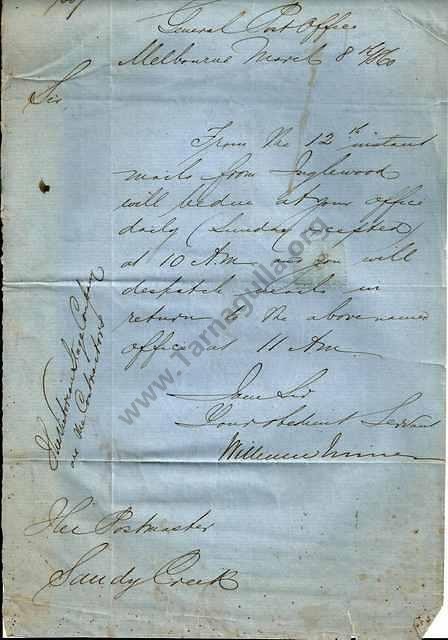 General Post Office
Melbourne March 8th 1860
Sir
From the 12th instant
mails from Inglewood
will be due at your office
daily (Sunday excepted)
at 10 A.M. and you will
despatch mails in
return to the above named
office at 11 A.M.
I am Sir
Your obedient Servant
William
The Victorian Stage Company
are the Contractors
The Postmaster
Sandy Creek
www.Tarnagulla.org